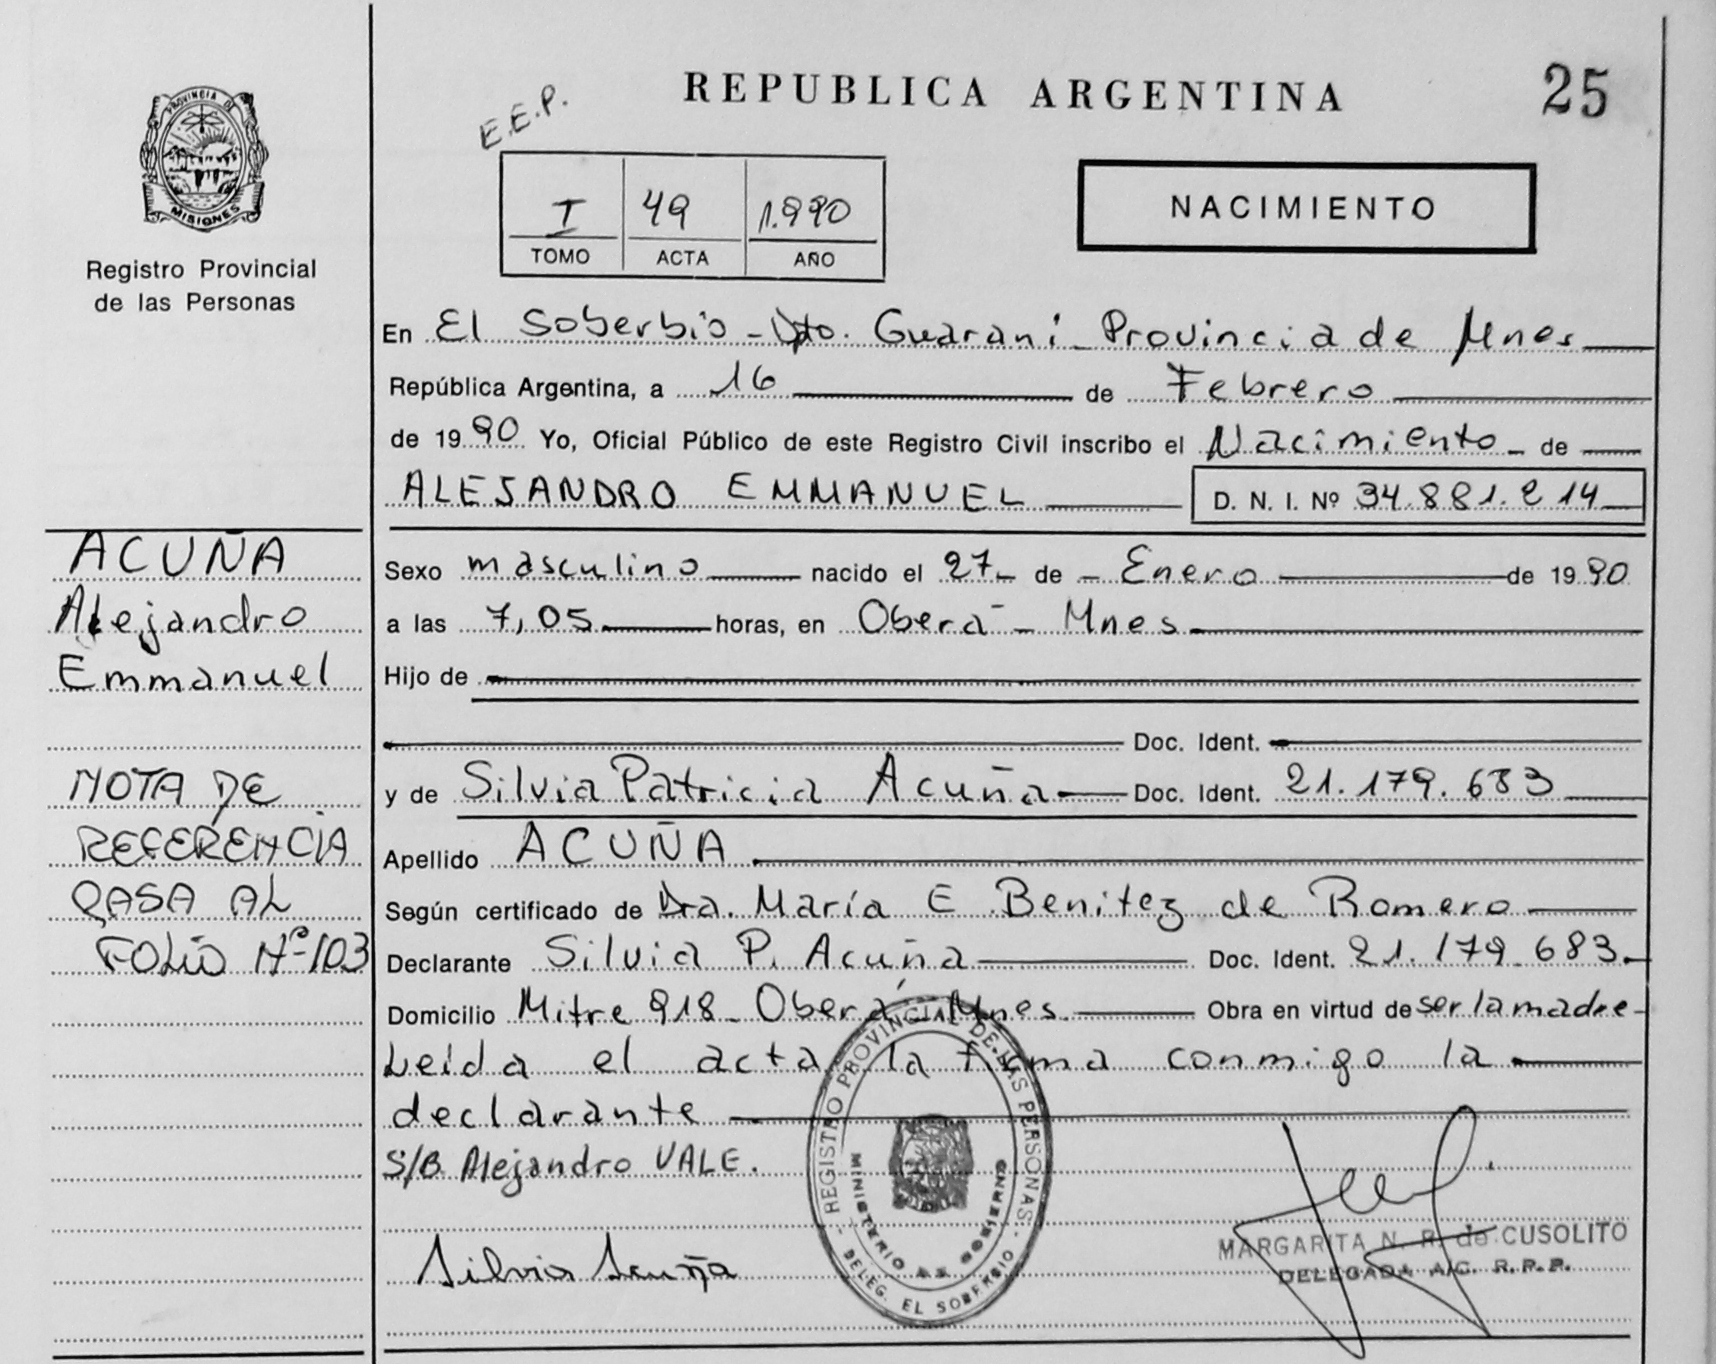 REPUBLICA ARGENTINA
25
E.E.P.
PROVINCIA DE
MISIONES
Registro Provincial
de las Personas
I 49 1.990
TOMO ACTA AÑO
NACIMIENTO
En El Soberbio - Dto. Guaraní - Provincia de Mnes
República Argentina, a 16 de Febrero
de 1990 Yo, Oficial Público de este Registro Civil inscribo el Nacimiento - de
ALEJANDRO EMMANUEL D. N. I. Nº 34.881.214
Sexo masculino nacido el 27 - de - Enero de 1990
a las 7,05 horas, en Oberá - Mnes
Hijo de
Doc. Ident.
y de Silvia Patricia Acuña Doc. Ident. 21.179.683
Apellido ACUÑA
Según certificado de Dra. María E Benitez de Romero
Declarante Silvia P. Acuña Doc. Ident. 21.179.683
Domicilio Mitre 918 - Oberá - Mnes Obra en virtud de ser la madre -
Leída el acta la firma conmigo la
declarante
S/B. Alejandro VALE.
Silvia Acuña
ACUÑA
Alejandro
Emmanuel
NOTA DE
REFERENCIA
PASA AL
FOLIO Nº 103
REGISTRO PROVINCIAL DE LAS PERSONAS
MINISTERIO DE GOBIERNO
DELEG. EL SOBERBIO
MARGARITA N. R. de CUSOLITO
DELEGADA A/C. R.P.P.